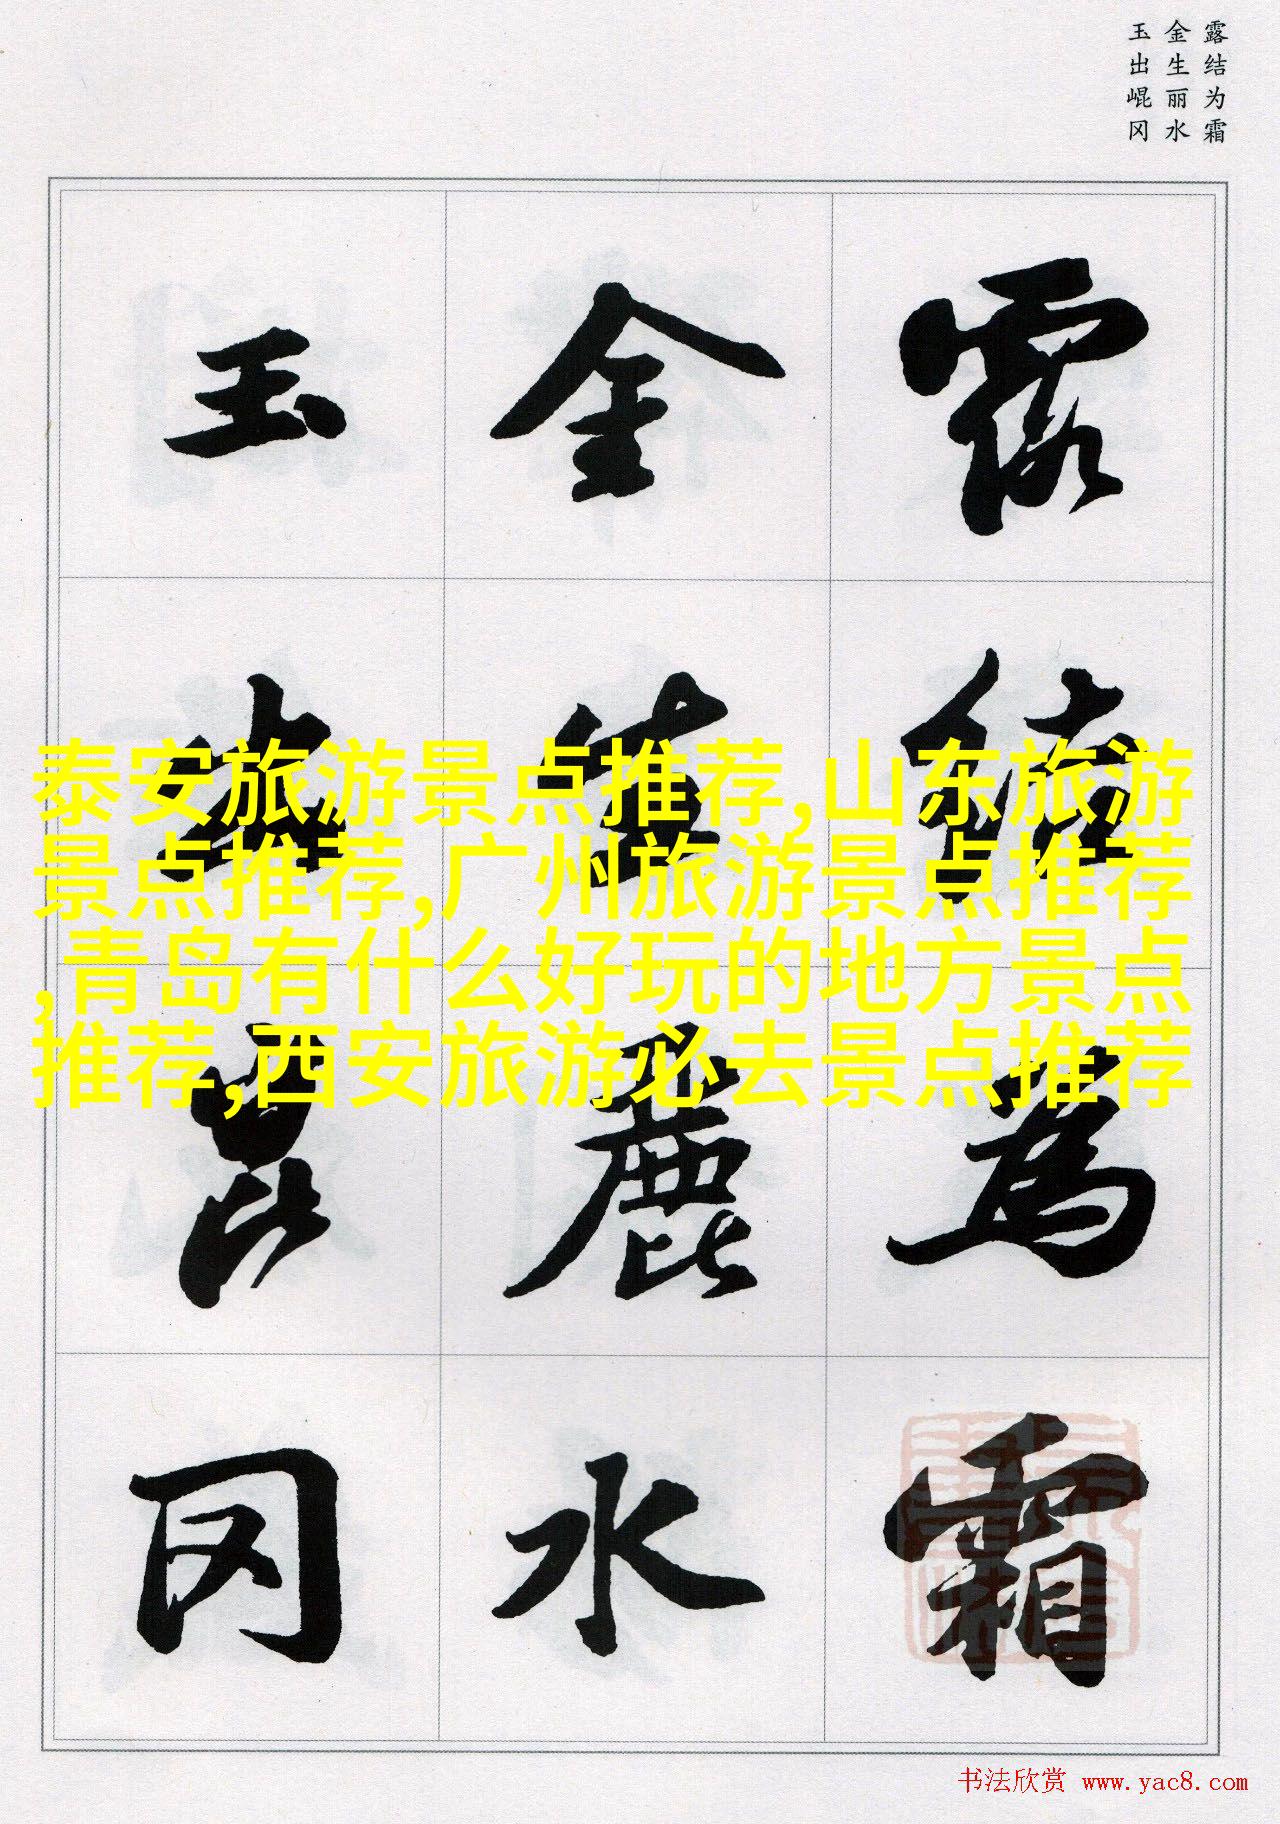 露结为霜
金生丽水
玉出崐冈
露結為霜
金生麗水
玉出崑冈
泰安旅游景点推荐,山东旅游
景点推荐,广州旅游景点推荐
,青岛有什么好玩的地方景点
推荐,西安旅游必去景点推荐
书法欣赏 www.yac8.com